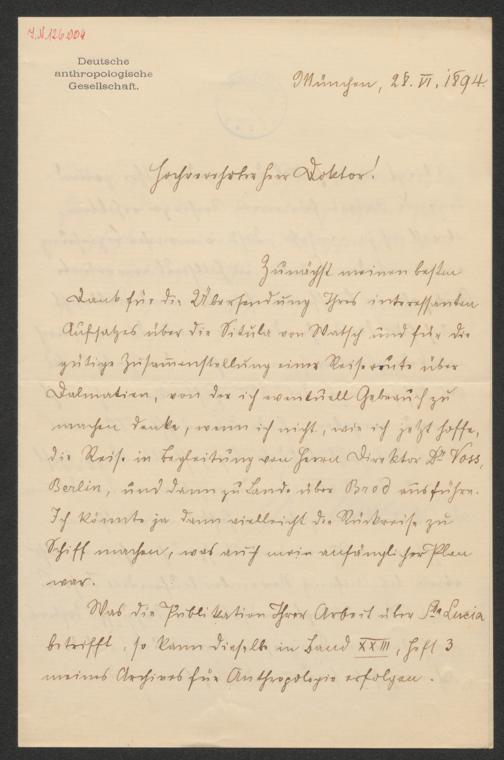 J.N.126.009
Deutsche
anthropologische
Gesellschaft.
München, 28. VI. 1894.
Hochverehrter Herr Doktor!
Zunächst meinen besten
Dank für die Übersendung Ihres interessanten
Aufsatzes über die Situla von Watsch und für die
gütige Zusam̅enstellung einer Reiseroute über
Dalmatien, von der ich eventuell Gebrauch zu
machen denke, wenn ich nicht, wie ich jetzt hoffe,
die Reise in Begleitung von Herrn Direktor Dr Voss,
Berlin, und dann zu Lande über Brod ausführe.
Ich könnte ja dann vielleicht die Rückreise zu
Schiff machen, was auch mein anfänglicher Plan
war.
Was die Publikation Ihrer Arbeit über Sta Lucia
betrifft, so kann dieselbe in Band XXIII, Heft 3
meines Archives für Anthropologie erfolgen.